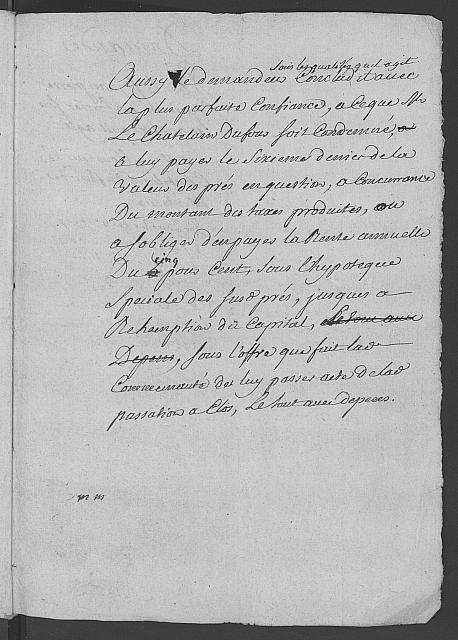 sous les qualités qu'il agit
Aussy le demandeur conclud it avec
la plus parfaite Confiance, a ce que Mr
Le Chatelain Dufour soit Condemné, a
a luy payer le sixieme denier de la
Valeur des prés en question, a Concurrance
Du montant des taxes produites, ou
a s'obliger d'en payer la Rente annuelle
Du cinq pour Cent, sous l'hypoteque
speciale des susd prés, jusques a
Rehemption du Capital, le tout avec
Depens, sous l'offre que fait lad
Communauté de luy passer acte de lad
passation a Clos, Le tout avec depens.